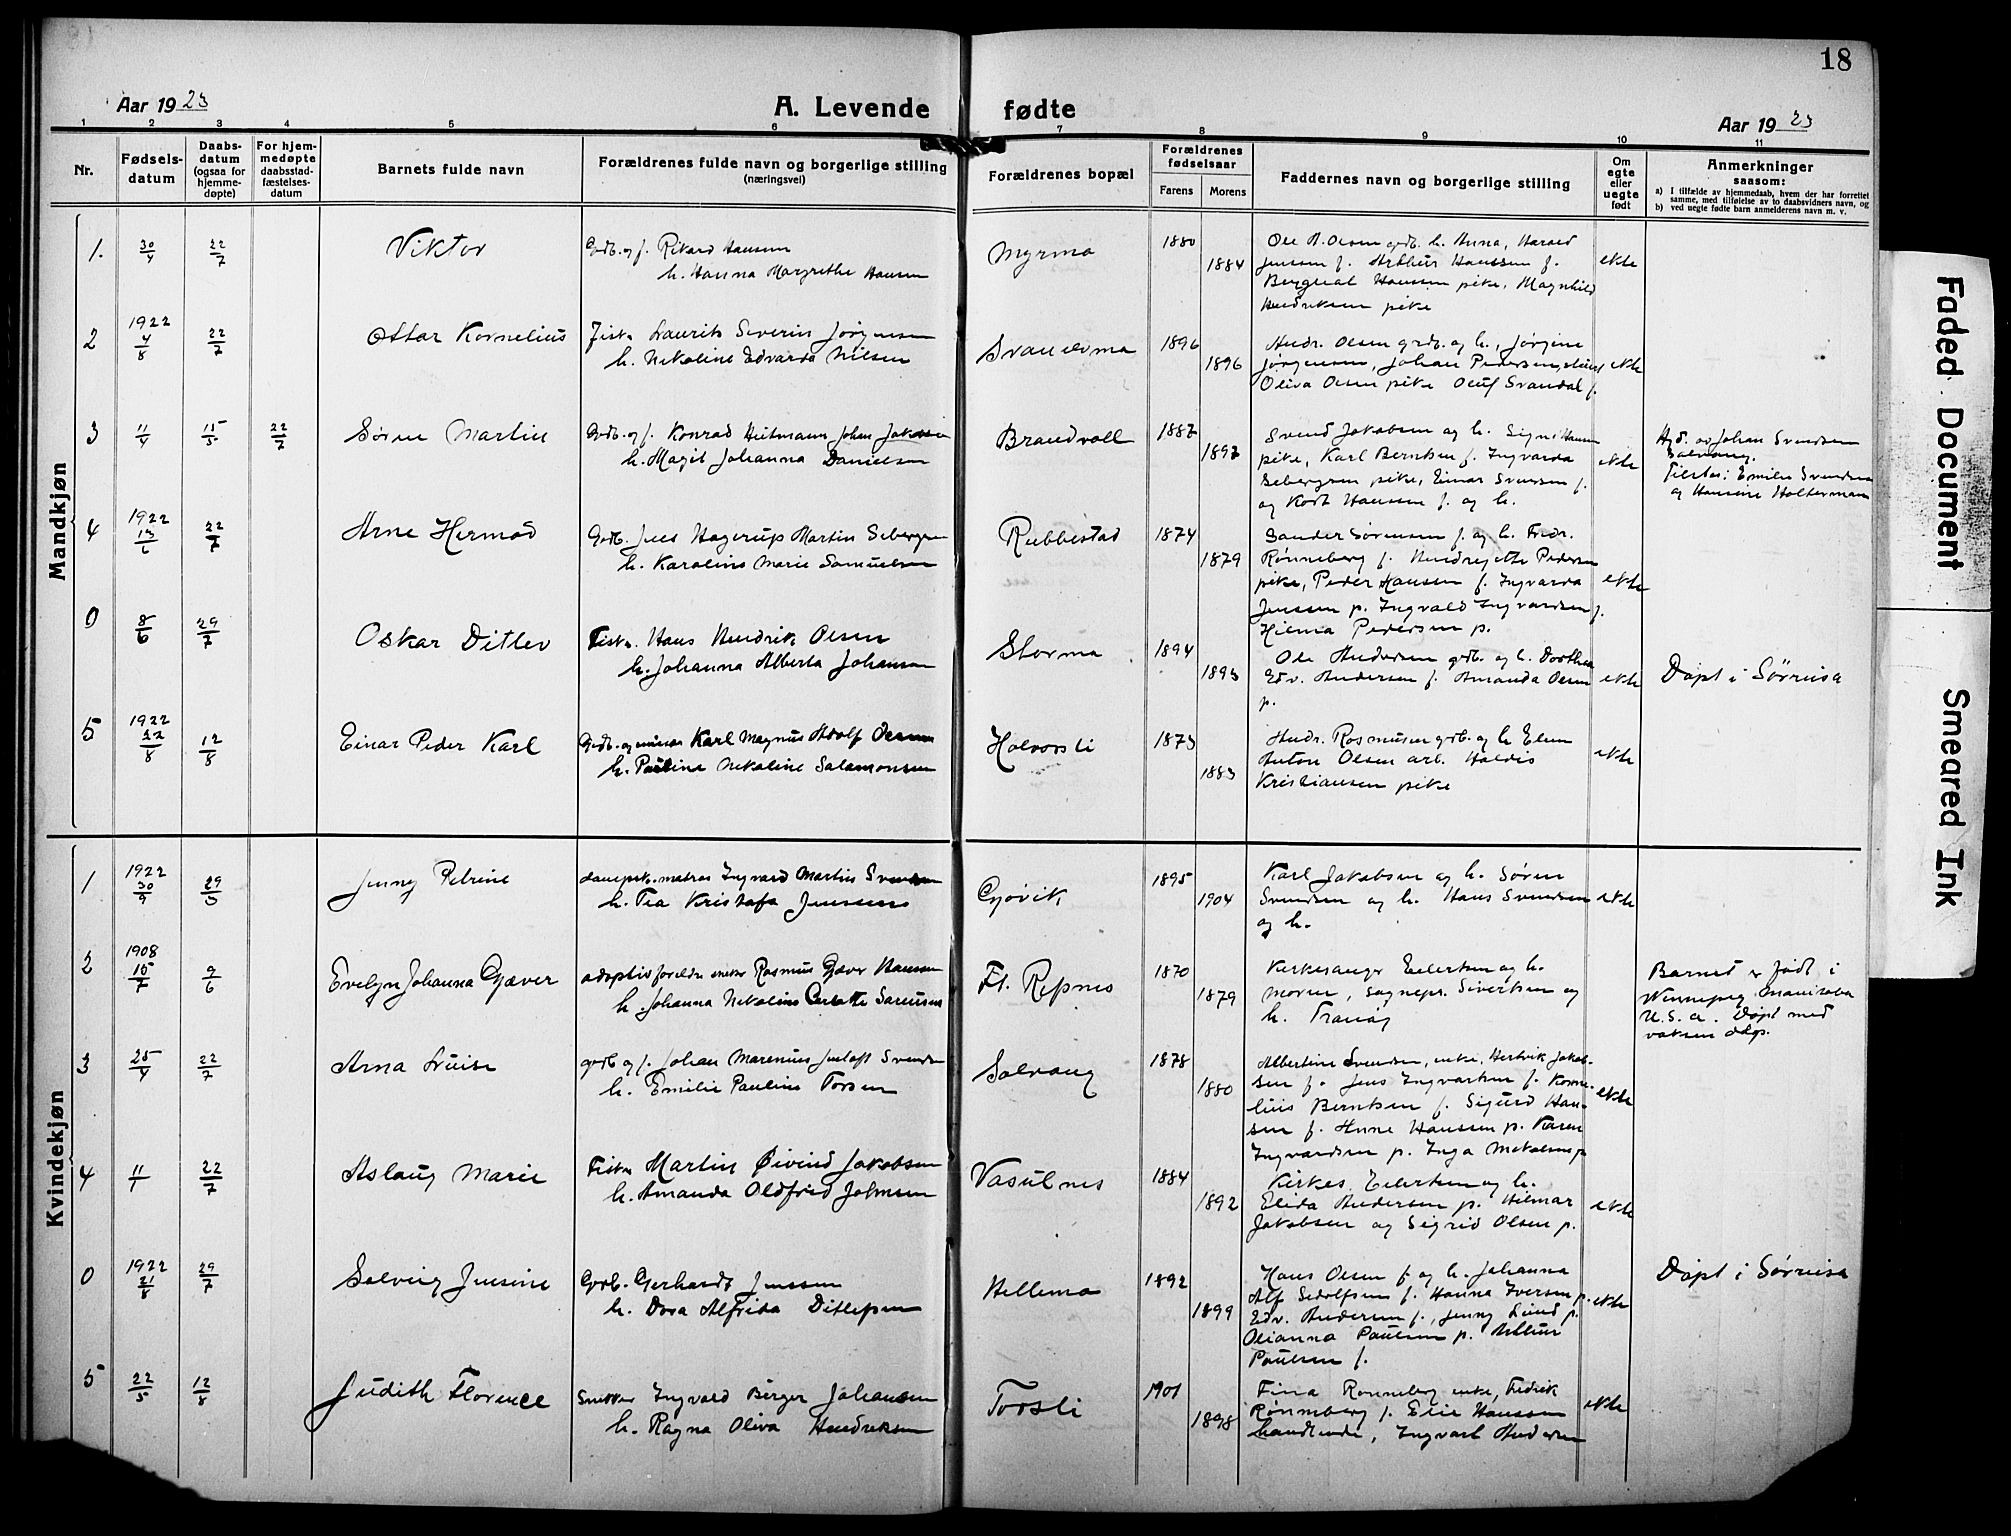 18
Aar 1923
A. Levende fødte
Aar 1923
1 2 3 4 5 6 7 8 9 10 11
Nr.
Fødsels-
datum
Daabs-
datum
(ogsaa for
hjemme-
døpte)
For hjem-
medøpte
daabsstad-
fæstelses-
datum
Barnets fulde navn
Forældrenes fulde navn og borgerlige stilling
(næringsvei)
Forældrenes bopæl
Forældrenes
fødselsaar
Farens
Morens
Faddernes navn og borgerlige stilling
Om
egte
eller
uegte
født
Anmerkninger
saasom:
a) I tilfælde av hjemmedaab, hvem der har forrettet
samme, med tilføielse av to daabsvidners navn, og
b) ved uegte fødte barn anmelderens navn m. v.
Mandkjøn
1. 30/4 22/7 Viktor Grdb. og f. Rikard Hansen
h. Hanna Margrethe Hansen
Myrmo 1880 1884
Ole A. Olsen grdb. h. Anna, Harald
Jensen f. Arthur Hanssen f.
Hanssen pike, Magnhild
Hendriksen pike
ekte
2 1922 4/8 22/7 Ottar Kornelius Fisk. Laurits Severin Jørgensen
h. Nekoline Edvarda Nilsen
1896 1896
Andr. Olsen grdb. og h., Jørgine
Jørgensen, Johan Pedersen,
Oliva Olsen pike Oluf Svandal f.
ekte
3 11/4 15/5 22/7 Søren Martin Grdb. og f. Konrad Heitmann Johan Jakobsen
h. Magit Johanna Danielsen
Brandvoll 1887 1897
Svend Jakobsen og h. Signe Hansen
pike, Karl Berntsen f. Ingvarda
Sebergsen pike, Einar Svensen f.
og Kort Hanssen f. og h.
ekte
Hjd. av Johan Svendsen
Solvang.
Tilstede: Emilie Svendsen
og Hansine Holtermann
4 1922 13/6 22/7 Arne Hermod Grdb. Jens Hagerup Martin Sebergsen
h. Karoline Marie Samuelsen
Rubbestad 1874 1879
Sander Sørensen f. og h. Fredr.
Rønneberg f. Hendrijette Pedersen
pike, Peder Hanssen f. Ingvarda
Jenssen p. Ingvald Ingvardsen f.
Hilma Pedersen p.
ekte
0 8/6 29/7 Oskar Ditlev Fisk. Hans Hendrik Olsen
h. Johanna Alberta Johansen
Stormo 1894 1893
Ole Andersen grdb. og h. Dorthea
Edv. Andersen f. Amanda Olsen
p.
ekte
Døpt i Sørreisa
5 1922 22/8 12/8 Einar Peder Karl Grdb. og Karl Magnus Adolf Olsen
h. Pauline Nekoline Salamonsen
Holvorsli 1873 1883
Andr. Rasmusen grb. og h Elen
Anton Olsen arb. Haldis
Kristiansen pike
ekte
Kvindekjøn
1 1922 30/9 29/5 Jenny Petrine matros Ingvard Martin Svendsen
h. Tea Kristofa Jenssen
Gjøvik 1895 1904
Karl Jakobsen og h. Søren
Svendsen og h. Hans Svendsen
og h.
ekte
2 1908 15/7 9/6 Evelyn Johanna Gjæver adoptivforeldre Rasmus Gjæver Hansen
h. Johanna Nekoline Sørensen
Fl. Repnes 1870 1879
Kirkesanger Eilertsen og h.
moren, sognepr. Sivertsen og
h. Tranøy
Barnet er født i
Winnepeg Manitoba
U.S.A. Døpt med
voksen daap.
3 25/4 22/7 Arna Luise grdb og f. Johan Marenius Justoft Svendsen
h. Emilie Pauline Torsen
Solvang 1878 1880
Albertine Svendsen, enke, Hertvik Jakob-
sen f. Jens Ingvartsen f. Korne-
lius Berntsen f. Sigurd Han-
sen f. Anne Hanssen p. Karen
Ingvardsen p. Inga p
ekte
4 11/1 22/7 Aslaug Marie Fisk Martin Øivind Jakobsen
h. Amanda Oldfrid Johnsen
Vasulnes 1884 1892
Kirkes. Eilertsen og h.
Elida Andersen p. Hilmar
Jakobsen og Sigrid Olsen p.
ekte
0 1922 21/8 29/7 Solveig Jensine Grdb. Gerhardt Jenssen
h. Dora Alfrida Ditlefsen
Hellemo 1892 1899
Hans Olsen f. og h. Johanna
Alf Sedolfsen f. Hanna Iversen p.
Edv. Andersen f., Jenny Lund p.
Olianna Paulsen p. Arthur
Paulsen f.
ekte
Døpt i Sørreisa
5 22/5 12/8 Judith Florence Snekker Ingvald Berger Johansen
h. Ragna Oliva Hendriksen
Torsli 1901 1898
Fina Rønneberg enke, Fredrik
Rønneberg f. Elie Hanssen
handlende, Ingvart Andersen
ekte
Faded Document
Smeared Ink